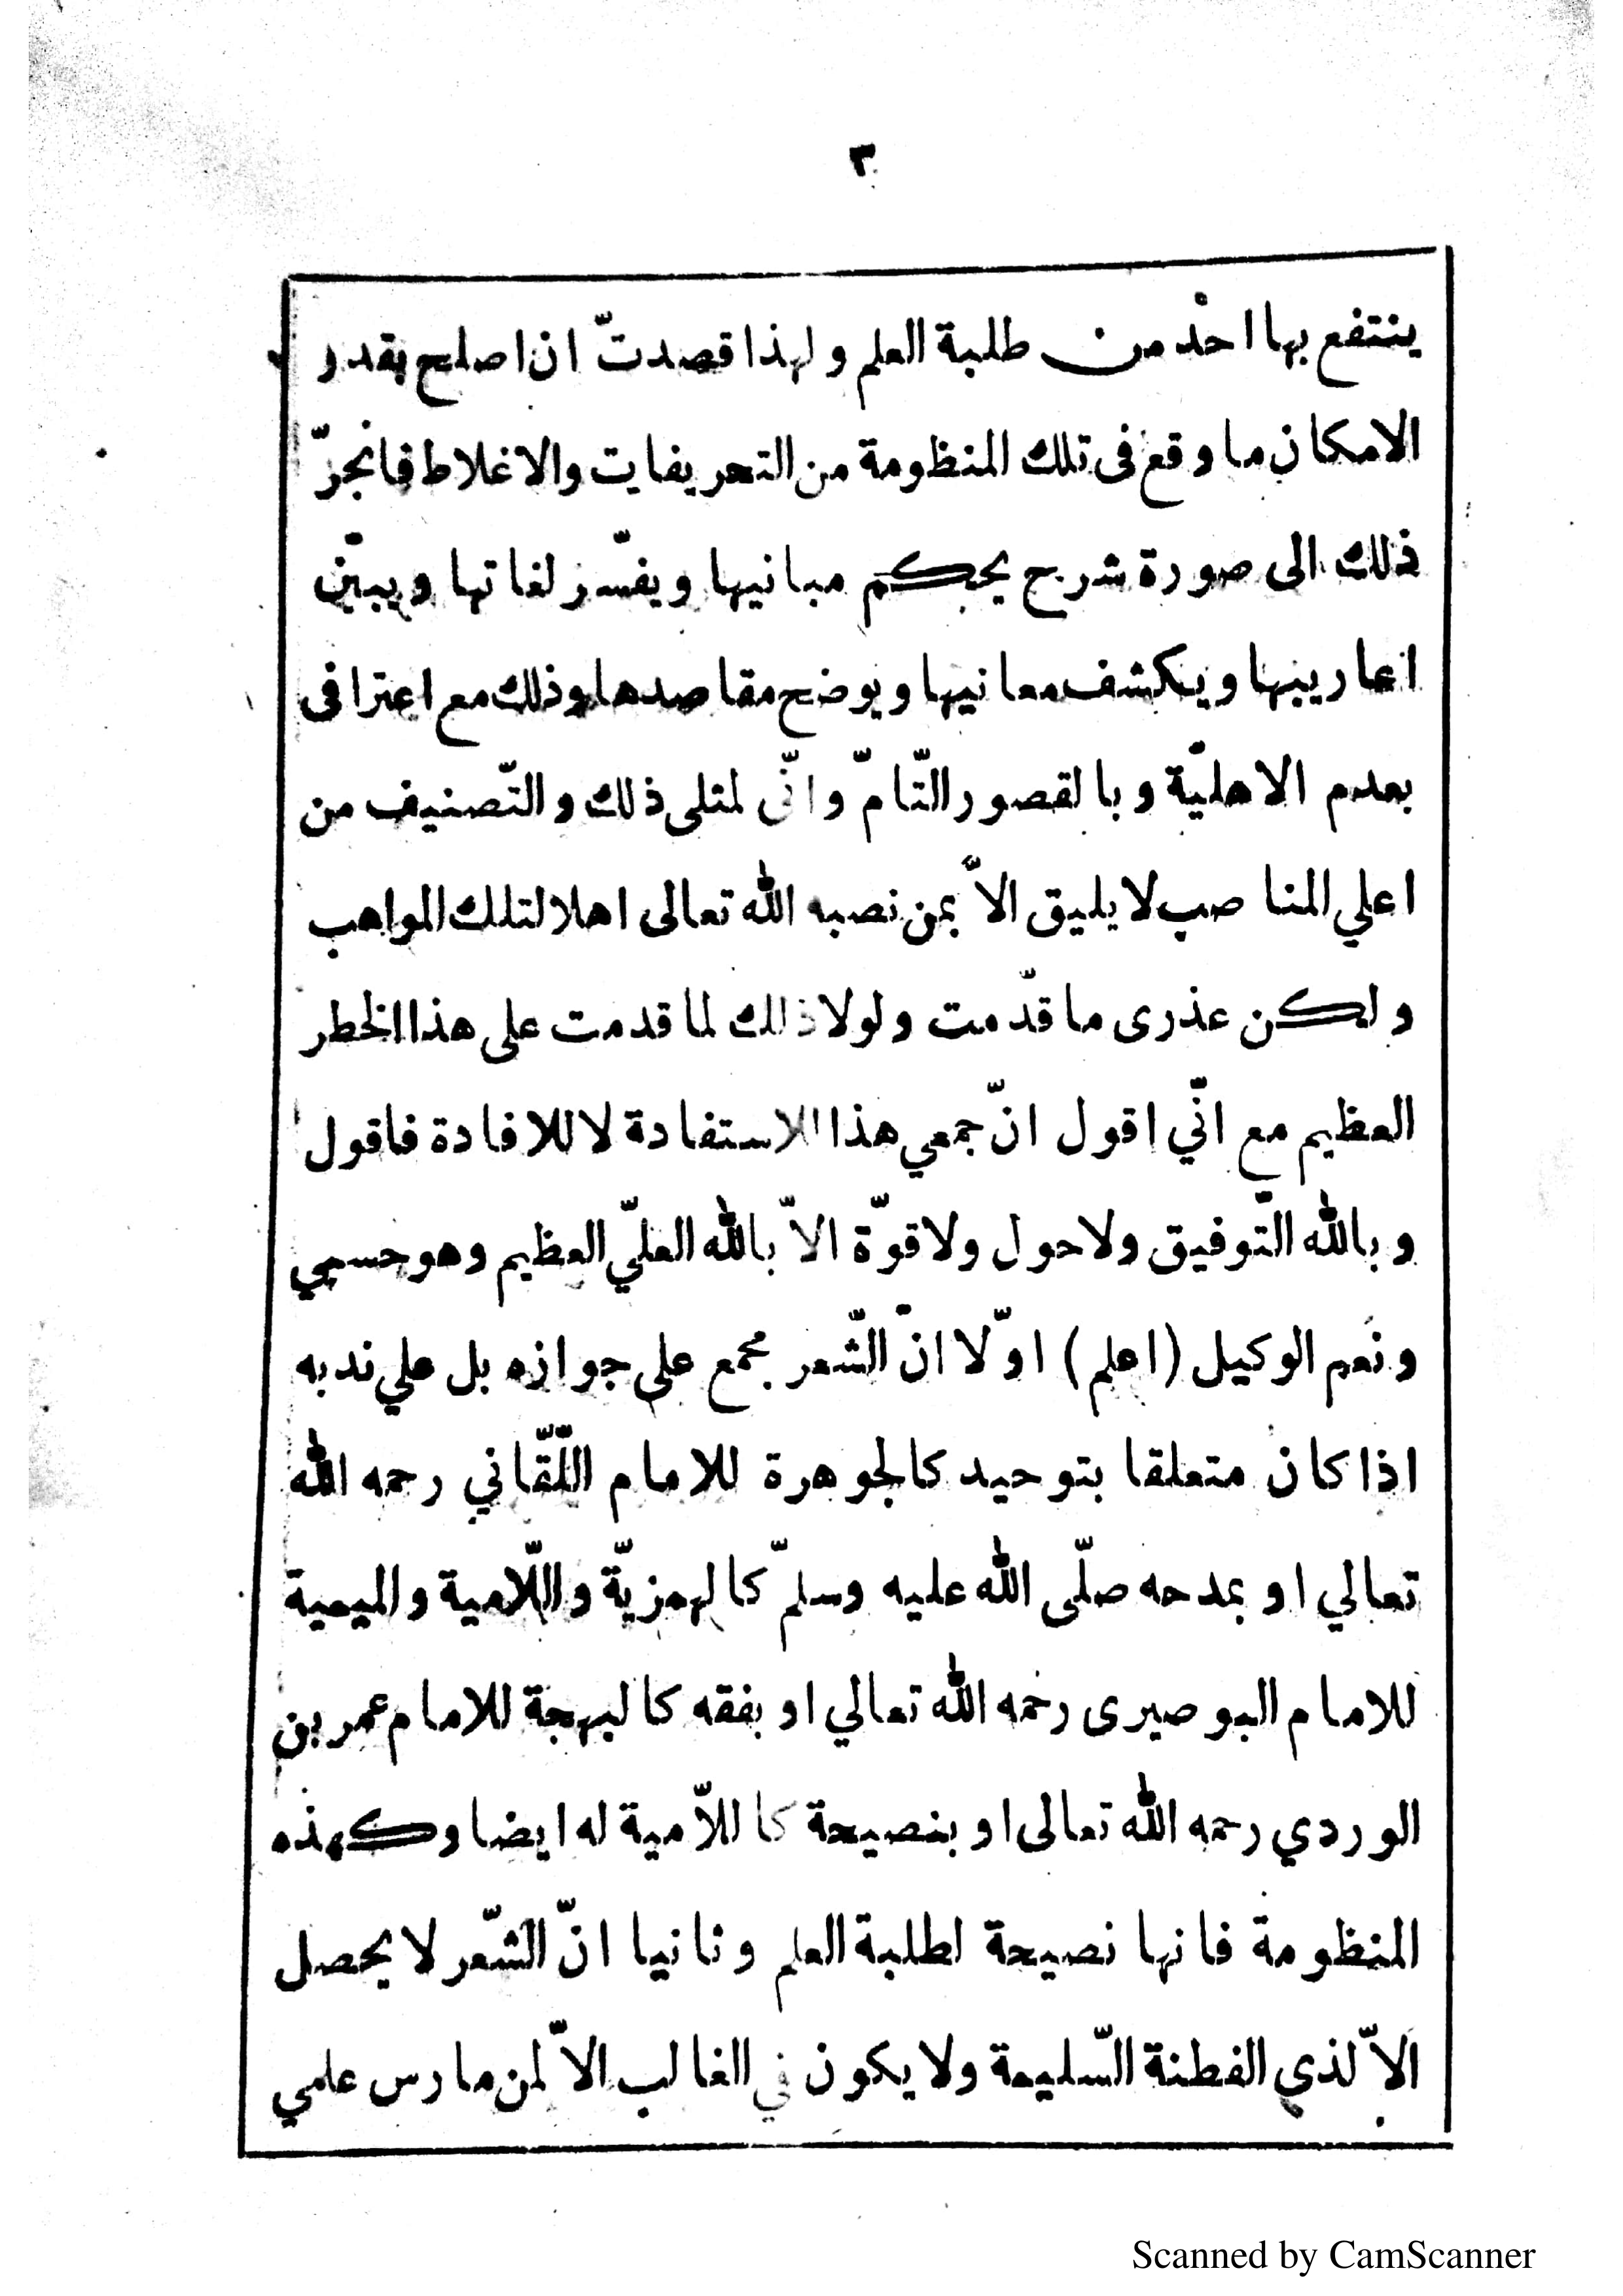 ٣
ينتفع بها احد من طلبة العلم ولهذا قصدتّ ان اصلح بقدر
الامكان ما وقع فى تلك المنظومة من التحريفايت والاغلاط فانجرّ
ذلك الى صورة شرح يحكم مبانيها ويفسّر لغاتها ويبيّن
اعاريبها ويكشف معانيها ويوضح مقاصدها وذلك مع اعترافى
بعدم الاهليّة وبالقصور التّامّ وانّى لمثلى ذلك والتّصنيف من
اعلي المناصب لا يليق الاّ بمن نصبه الله تعالى اهلا لتلك المواهب
ولكن عذرى ما قدّمت ولولا ذلك لما قدمت على هذا الخطر
العظيم مع انّي اقول انّ جمعي هذا للاستفادة لا للافادة فاقول
وبالله التّوفيق ولا حول ولا قوّة الاّ بالله العليّ العظيم وهو حسبي
ونعم الوكيل (اعلم) اوّلا انّ الشّعر مجمع على جوازه بل علي ندبه
اذا كان متعلقا بتوحيد كالجوهرة للامام اللّقّاني رحمه الله
تعالي او بمدحه صلّى الله عليه وسلمّ كالهمزيّة واللّامية والميمية
للامام البوصيرى رحمه الله تعالي او بفقه كالبهجة للامام عمر بن
الوردي رحمه الله تعالى او بنصيحة كاللاّمية له ايضا وكهذه
المنظومة فانها نصيحة لطلبة العلم وثانيا انّ الشّعر لا يحصل
الاّ لذي الفطنة السّليمة ولا يكون في الغالب الاّ لمن مارس علمي
Scanned by CamScanner